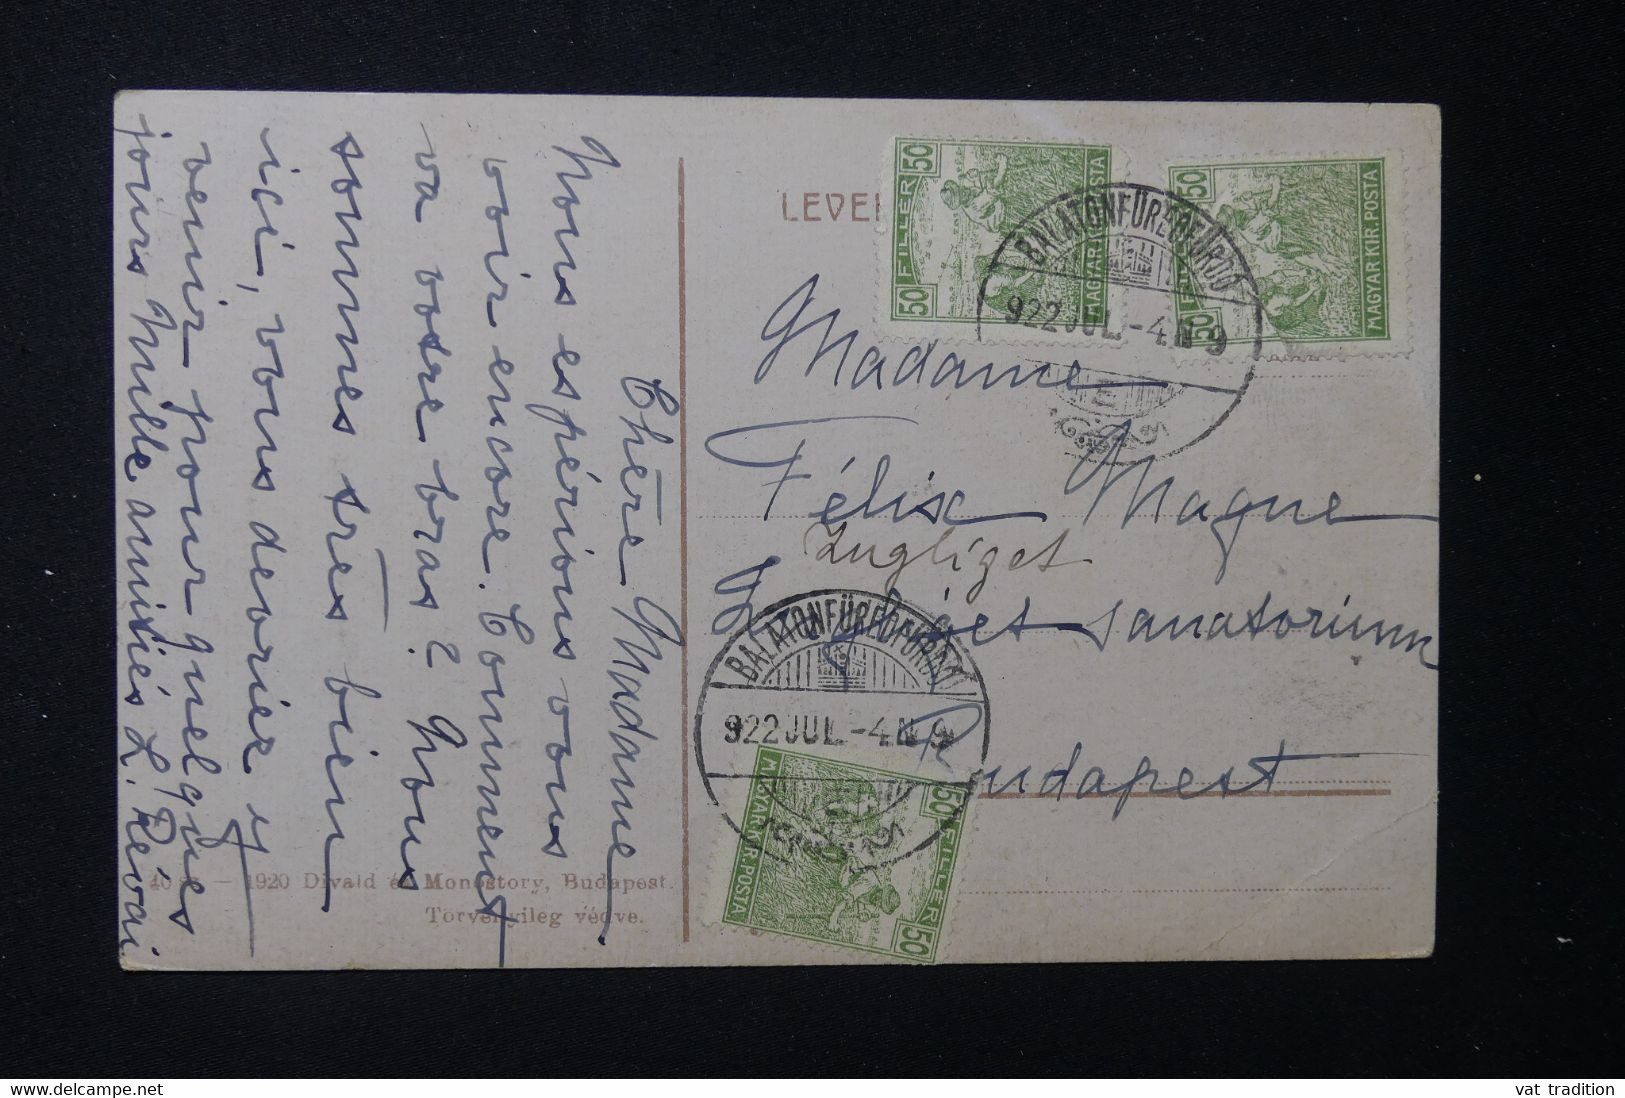 Chère Madame.
Nous espérious vous
voir encore. Comment
va votre bras? Nous
sommes très bien
ici, vous devriez y
venir pour quelques
jours Mille amitiés L. Révai
40 — 1920 Divald és Monostory, Budapest.
Törvényileg védve.
LEVE
50 FILLER 50
MAGYAR KIR. POSTA
50 50
MAGYAR KIR. POSTA
BALATONFÜREDFÜRDŐ
922 JUL. -4. N 9
Madame
Félix Magne
Zugliget
sanatorium
Budapest
BALATONFÜREDFÜRDŐ
922 JUL. -4. N 9
50 FILLER 50
MAGYAR KIR. POSTA
vat tradition